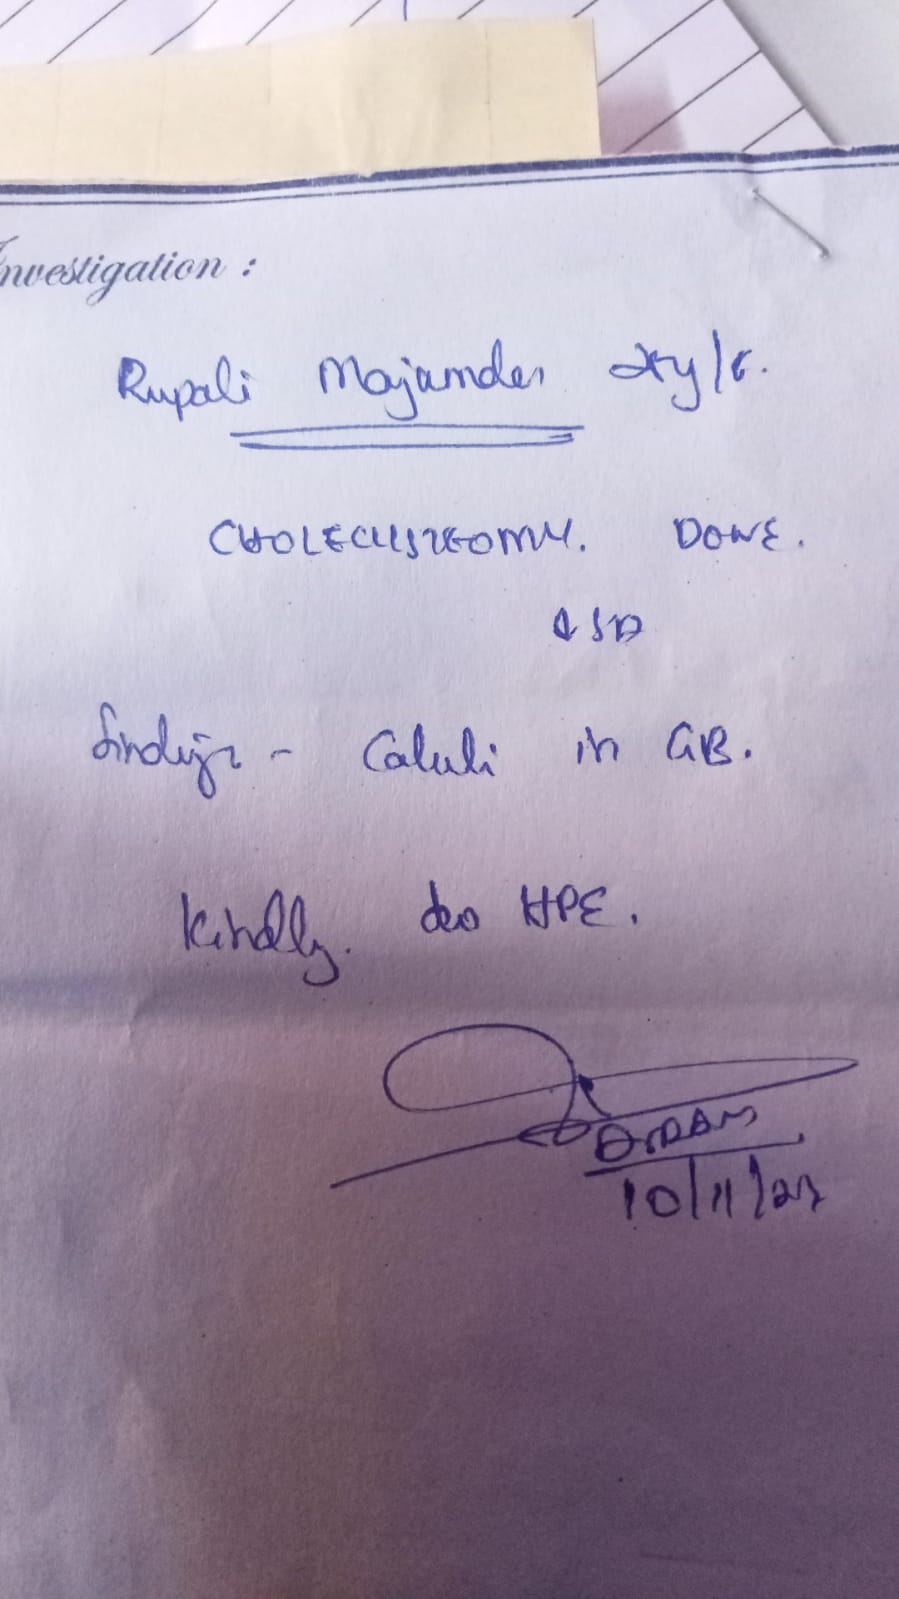 Investigation :
Rupali Majamder
CHOLECUSTEOMY. DONE.
Findings - Caluli in GB.
Kindly. do HPE.
10/11/23